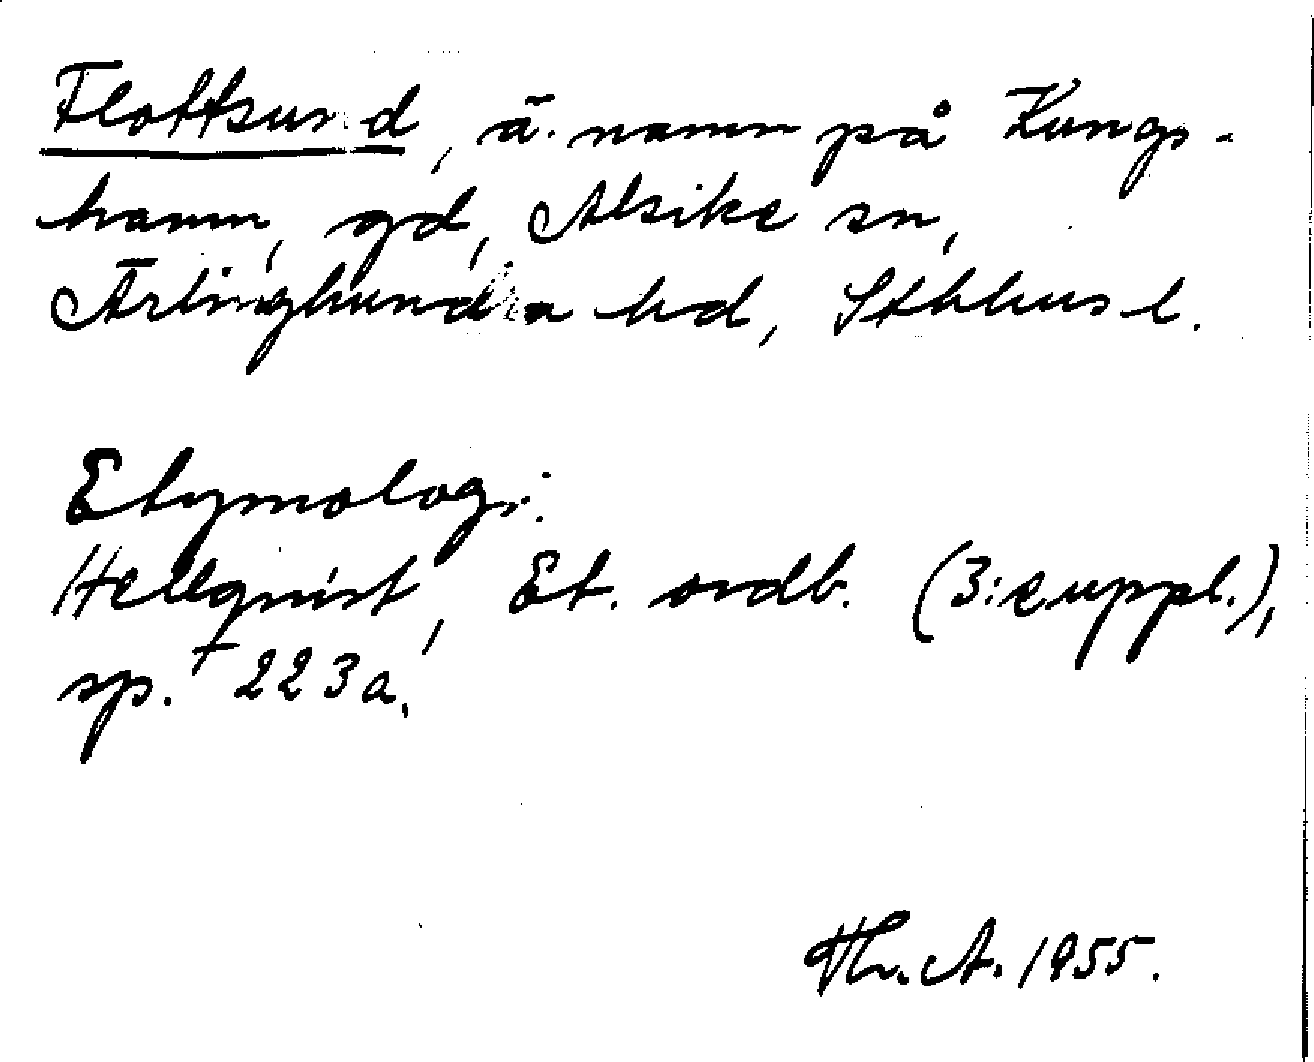 Flottsund, ä. namn på Kungs-
hamn, gd, Alsike sn,
Ärlinghundra hd, Sthlms l.
Etymologi:
Hellquist, Et. ordb. (3:e uppl.),
sp. 223 a.
Th. A. 1955.